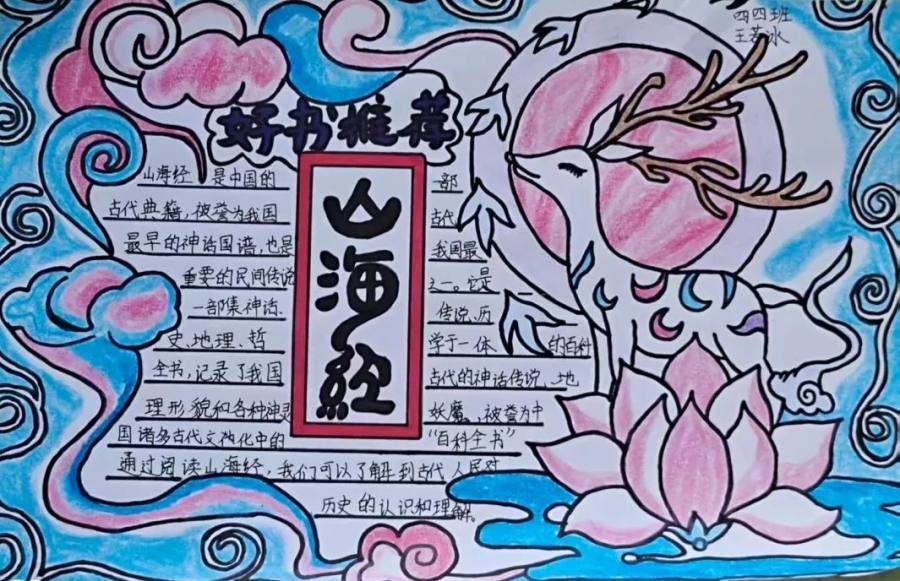 四四班
王若冰
好书推荐
山海经
山海经 是中国的 一部
古代典籍,被誉为我国 古代
最早的神话国谱,也是 我国最
重要的民间传说 之一。它是
一部集神话、 传说、历
史、地理、哲 学于一体 的百科
全书,记录了我国 古代的神话传说、地
理形貌和各种神灵 妖魔。被誉为中
国诸多古代文化中的 “百科全书”
通过阅读山海经,我们可以了解到古代人民对
历史的认识和理解。